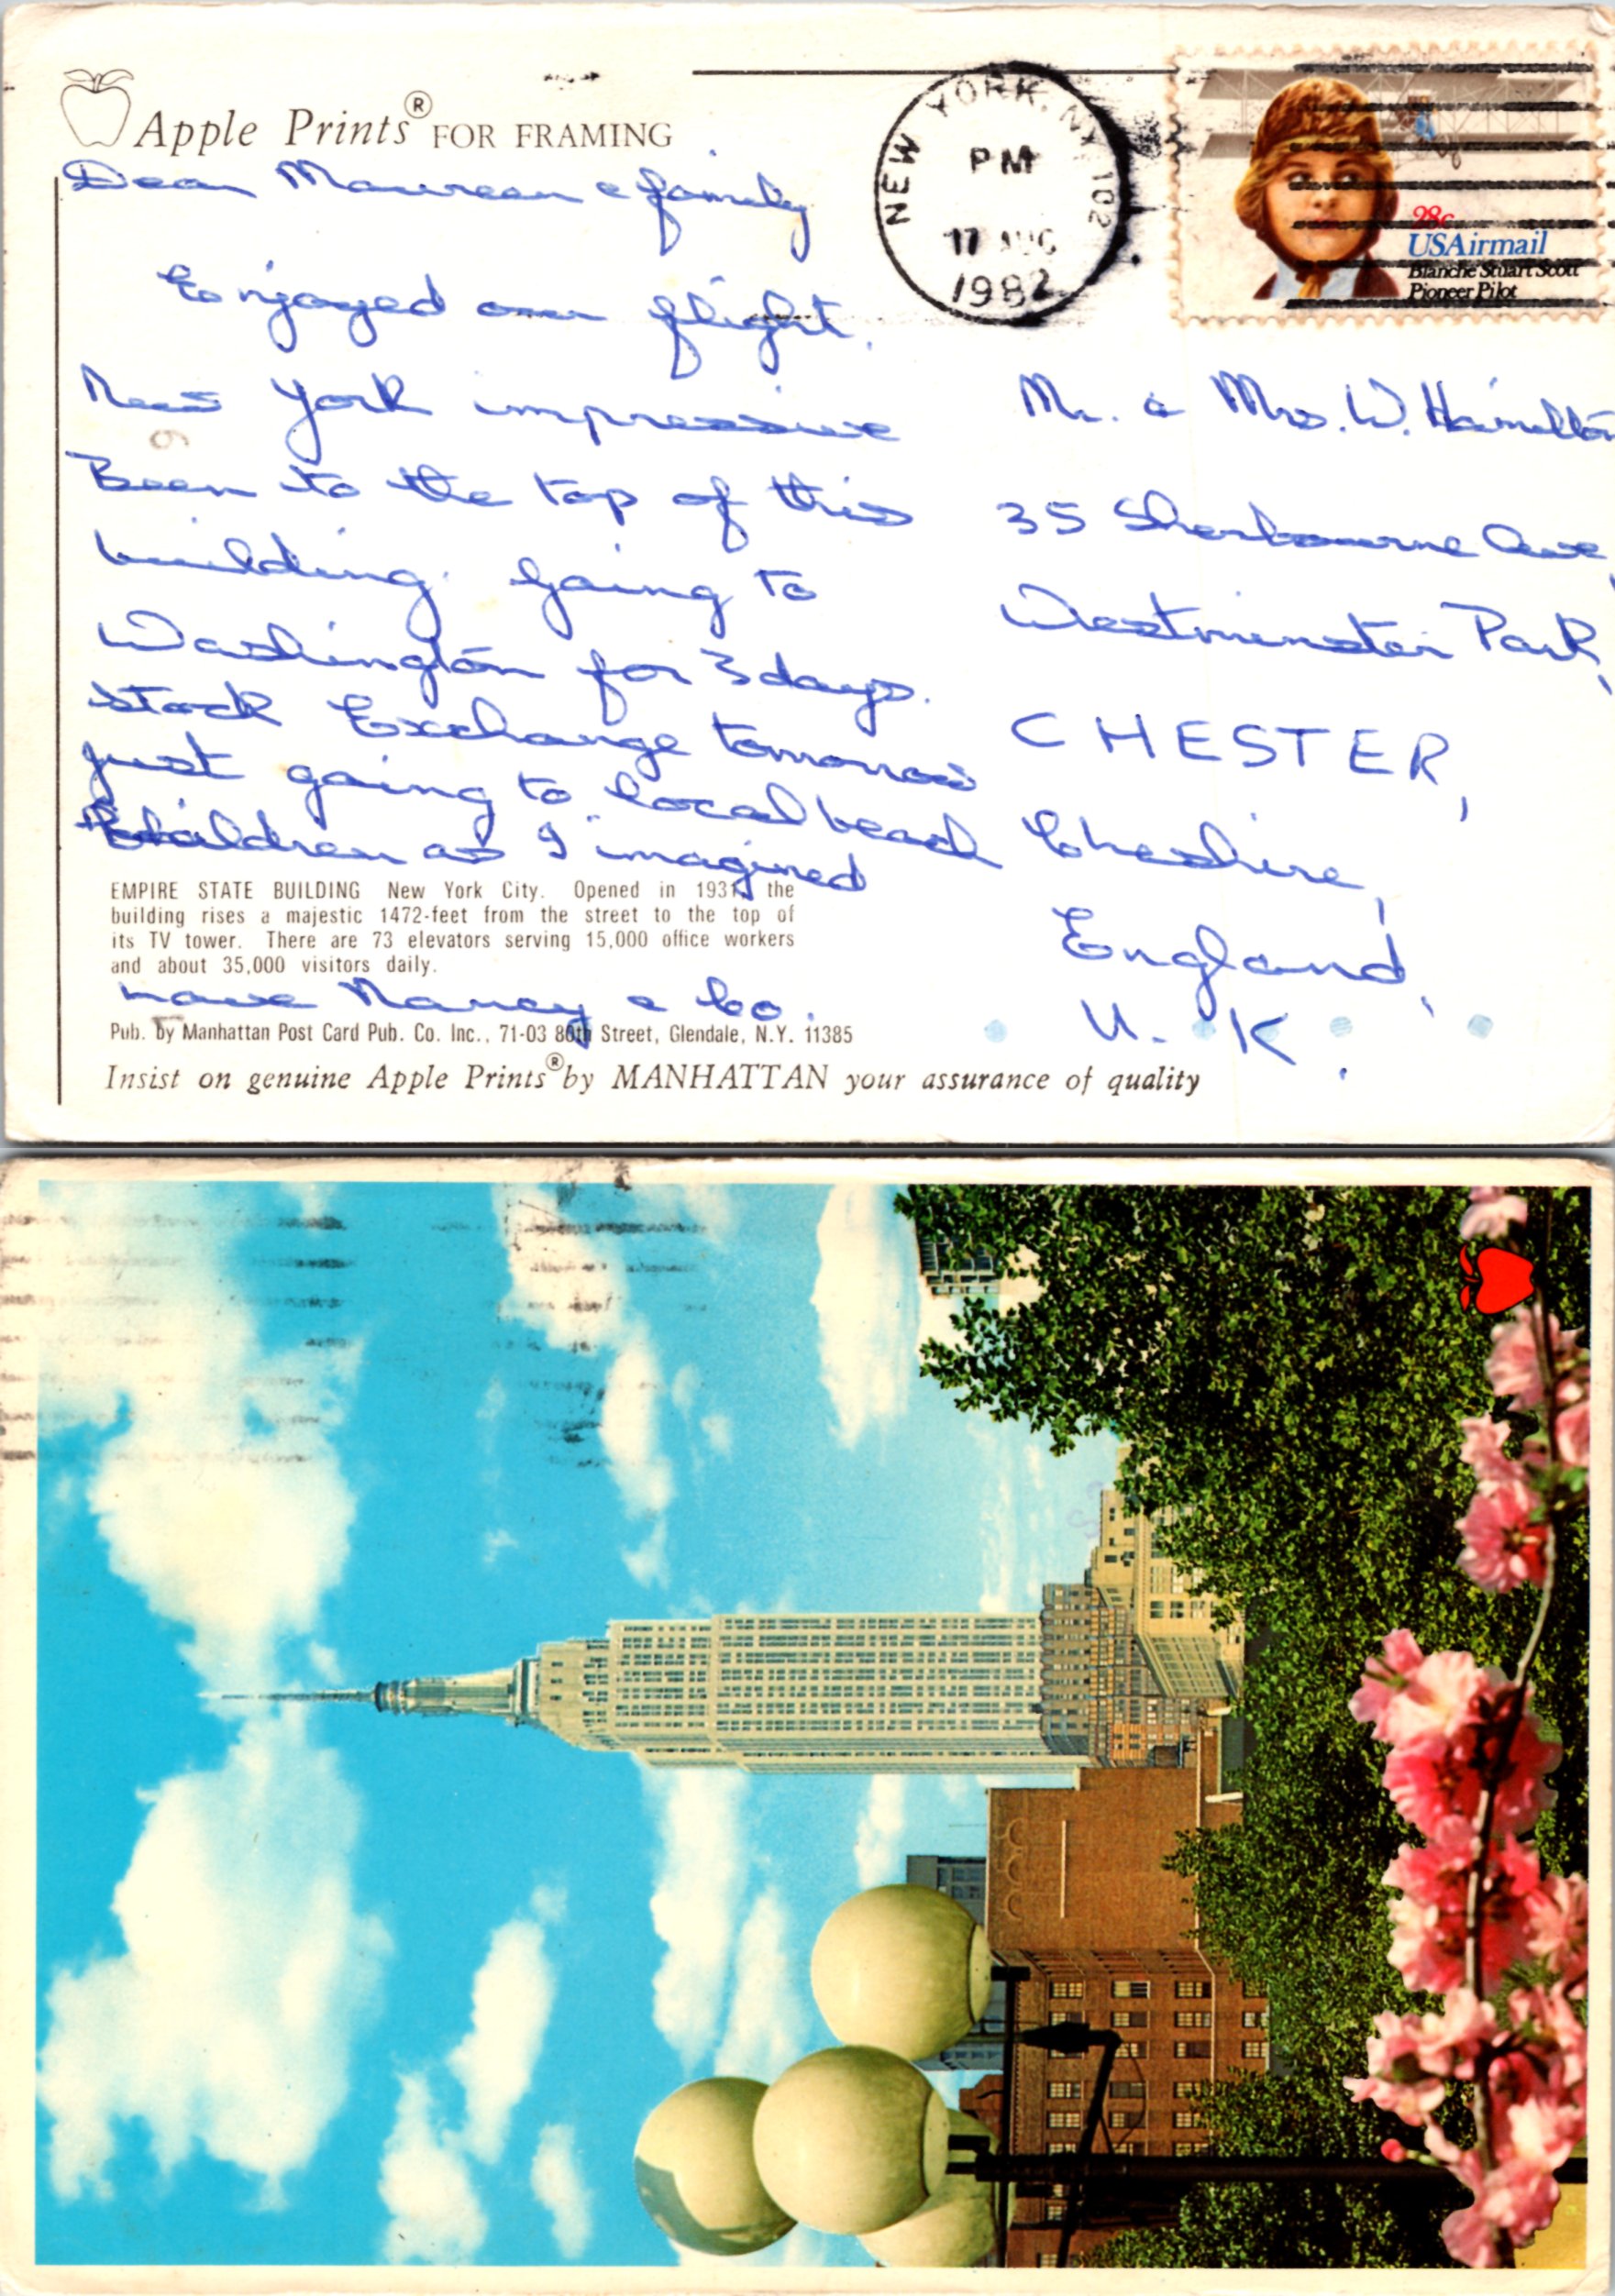 Apple Prints® FOR FRAMING
Dear Maureen & family
Enjoyed our flight.
New York impressive
Been to the top of this
building. Going to
Washington for 3 days.
Stock Exchange tomorrow
just going to local beach
children as I imagined
EMPIRE STATE BUILDING New York City. Opened in 1931, the
building rises a majestic 1472-feet from the street to the top of
its TV tower. There are 73 elevators serving 15,000 office workers
and about 35,000 visitors daily.
Love Nancy & Co.
Pub. by Manhattan Post Card Pub. Co. Inc., 71-03 80th Street, Glendale, N.Y. 11385
Insist on genuine Apple Prints® by MANHATTAN your assurance of quality
NEW YORK, NY 102
PM
17 AUG
1982
28c
USAirmail
Blanche Stuart Scott
Pioneer Pilot
Mr. & Mrs. W. Hamilton
35 Sherbourne Ave,
Westminster Park,
CHESTER,
Cheshire,
England,
U.K.